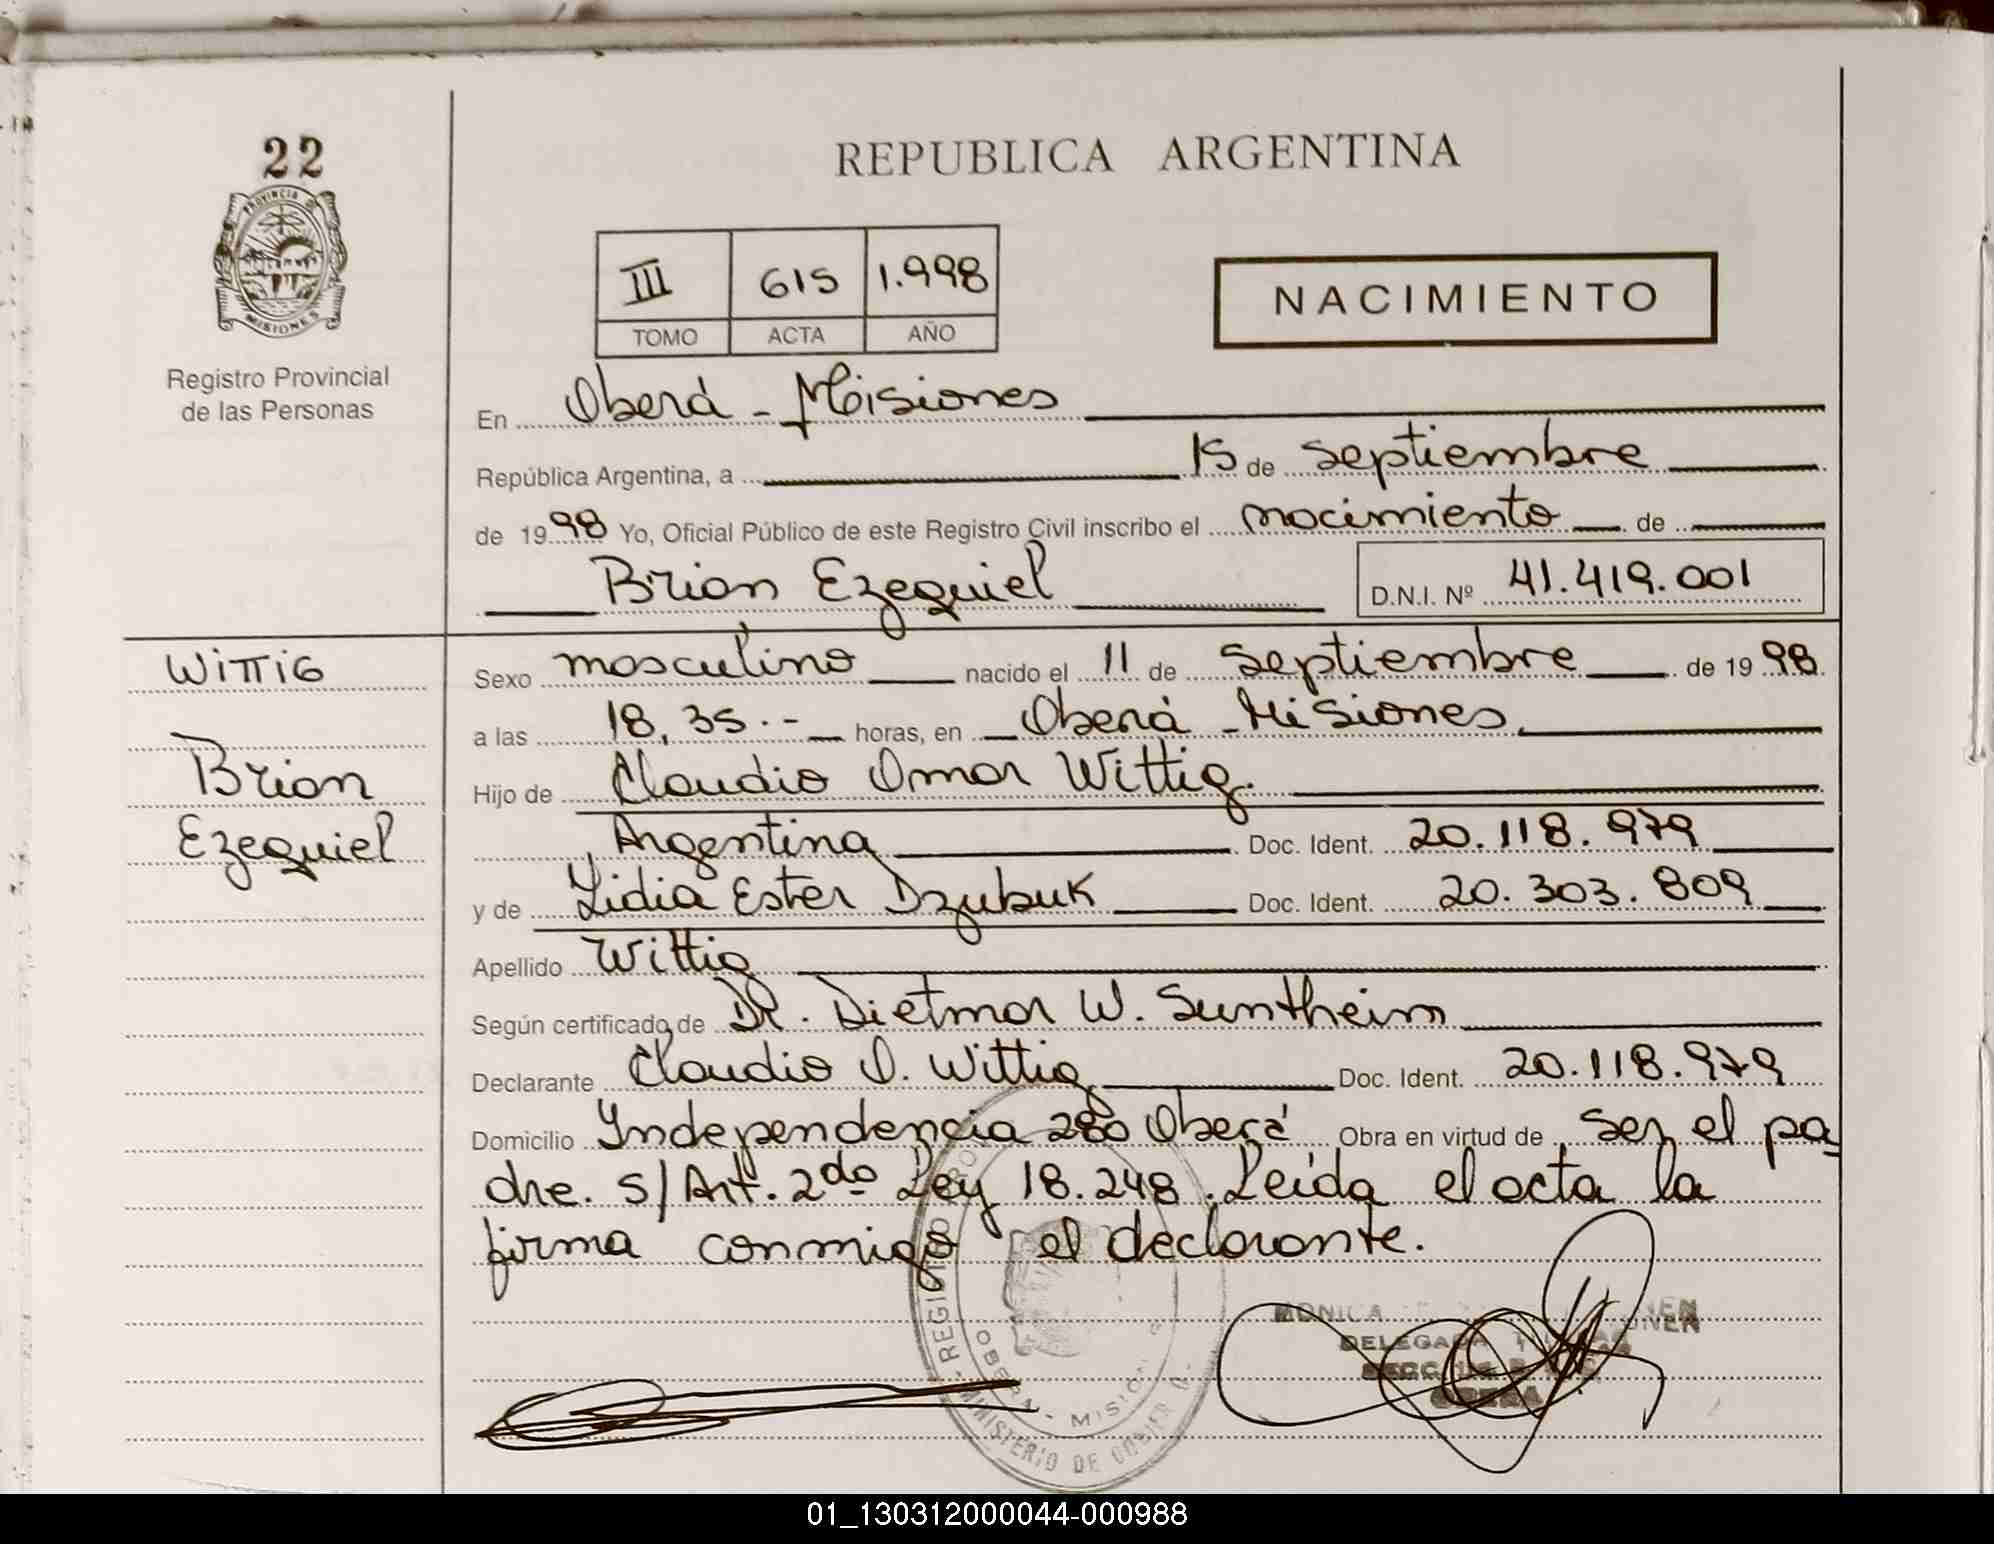 22
PROVINCIA DE
MISIONES
Registro Provincial
de las Personas
REPUBLICA ARGENTINA
III 615 1.998
TOMO ACTA AÑO
NACIMIENTO
En Oberá - Misiones
República Argentina, a 15 de septiembre
de 1998 Yo, Oficial Público de este Registro Civil inscribo el nacimiento de
Brian Ezequiel D.N.I. Nº 41.419.001
WITTIG
Brian
Ezequiel
Sexo masculino nacido el 11 de septiembre de 1998.
a las 18,35.- horas, en Oberá - Misiones,
Hijo de Claudio Omar Wittig.
Argentina Doc. Ident. 20.118.979
y de Lidia Ester Dzubuk Doc. Ident. 20.303.809
Apellido Wittig
Según certificado de Dr. Dietmar W. Suntheim
Declarante Claudio O. Wittig Doc. Ident. 20.118.979
Domicilio Independencia 280 Oberá Obra en virtud de ser el pa-
dre. s/ Art. 2do Ley 18.248. Leída el acta la
firma conmigo el declarante.
MONICA
DELEGADA
OBERA
REGISTRO
OBERA - MISIONES
MINISTERIO DE GOBIERNO
01_130312000044-000988